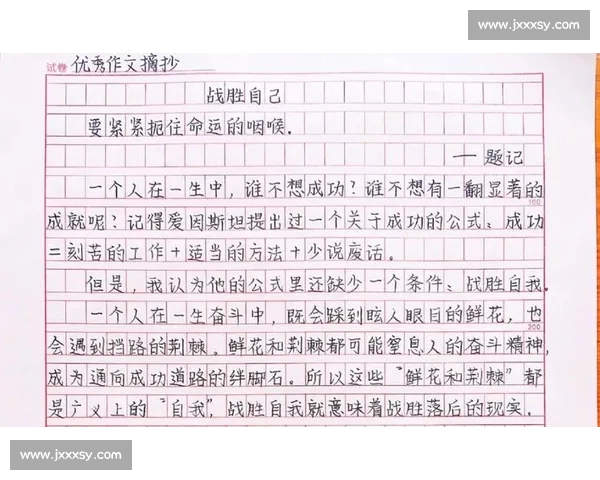 www.jxxxsy.com
试卷 优秀作文摘抄
战胜自己
要紧紧扼住命运的咽喉.
——题记
一个人在一生中,谁不想成功?谁不想有一翻显著的
100
成就呢?记得爱因斯坦提出过一个关于成功的公式:成功
=刻苦的工作+适当的方法+少说废话。
但是,我认为他的公式里还缺少一个条件:战胜自我.
一个人在一生奋斗中,既会踩到眩人眼目的鲜花,也
200
会遇到挡路的荆棘。鲜花和荆棘都可能窒息人的奋斗精神,
成为通向成功道路的绊脚石。所以这些“鲜花和荆棘”都
是广义上的“自我”,战胜自我就意味着战胜落后的现实.
www.jxxxsy.com